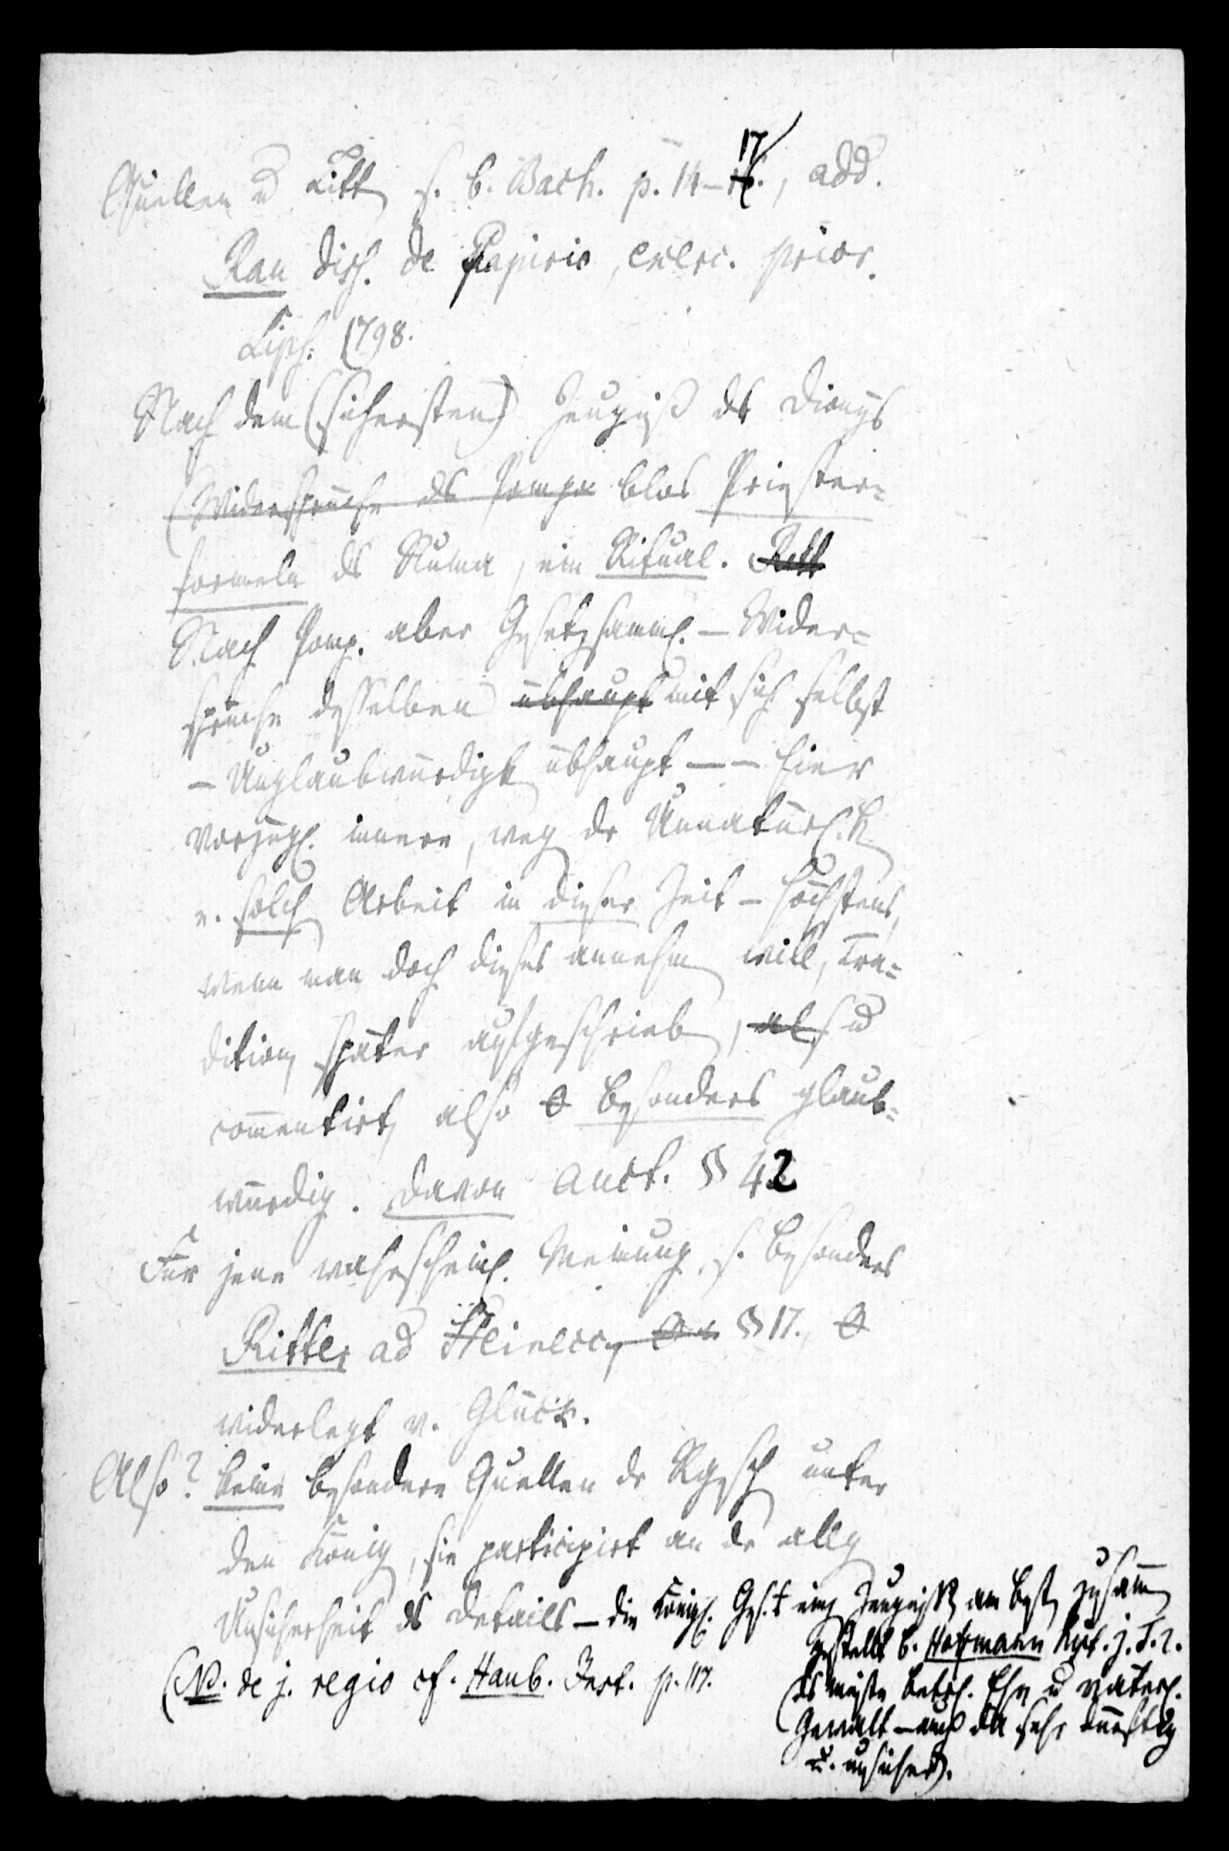 Quellen u Litt s. b. Bach. p. 14–17., add.
Rau diss. de Papirio, exerc. prior.
Lips. 1798.
Nach dem (sichersten) Zeugniß ds Dionys
(Widersprüche ds Pomp. blos Priester=
formeln ds Numa, ein Ritual.
Nach Pomp. aber Gesetzsamml. – Wider=
sprüche desselben überhaupt mit sich selbst
– Unglaubwürdigk übhaupt – – hier
vorzügl. innere, weg dr Unnatürl.k
v. solch Arbeit in dieser Zeit – höchstens,
wenn man doch dieses annehm will, Tra=
dition später aufgeschrieb, als u
commentirt, also besonders glaub=
würdig. Davon Anct. § 42
Für jene wahrscheinl. Meinung s. besonders
Ritter ad Heinecc. § 17.,
widerlegt v. Glück.
Also? keine besondere Quellen dr Rgesch unter
den König, sie participirt an dr allg
Unsicherheit ds Details – die Königl. Ges. einz Zeugnisse am best zusamm
gestellt b. Hofmann hist. j. T. 2.
(ds meiste betrf. Ehe u väterl.
Gewalt – auch da sehr dürftig
u. unsicher).
(NB. de j. regio cf. Haub. Inst. p. 117.